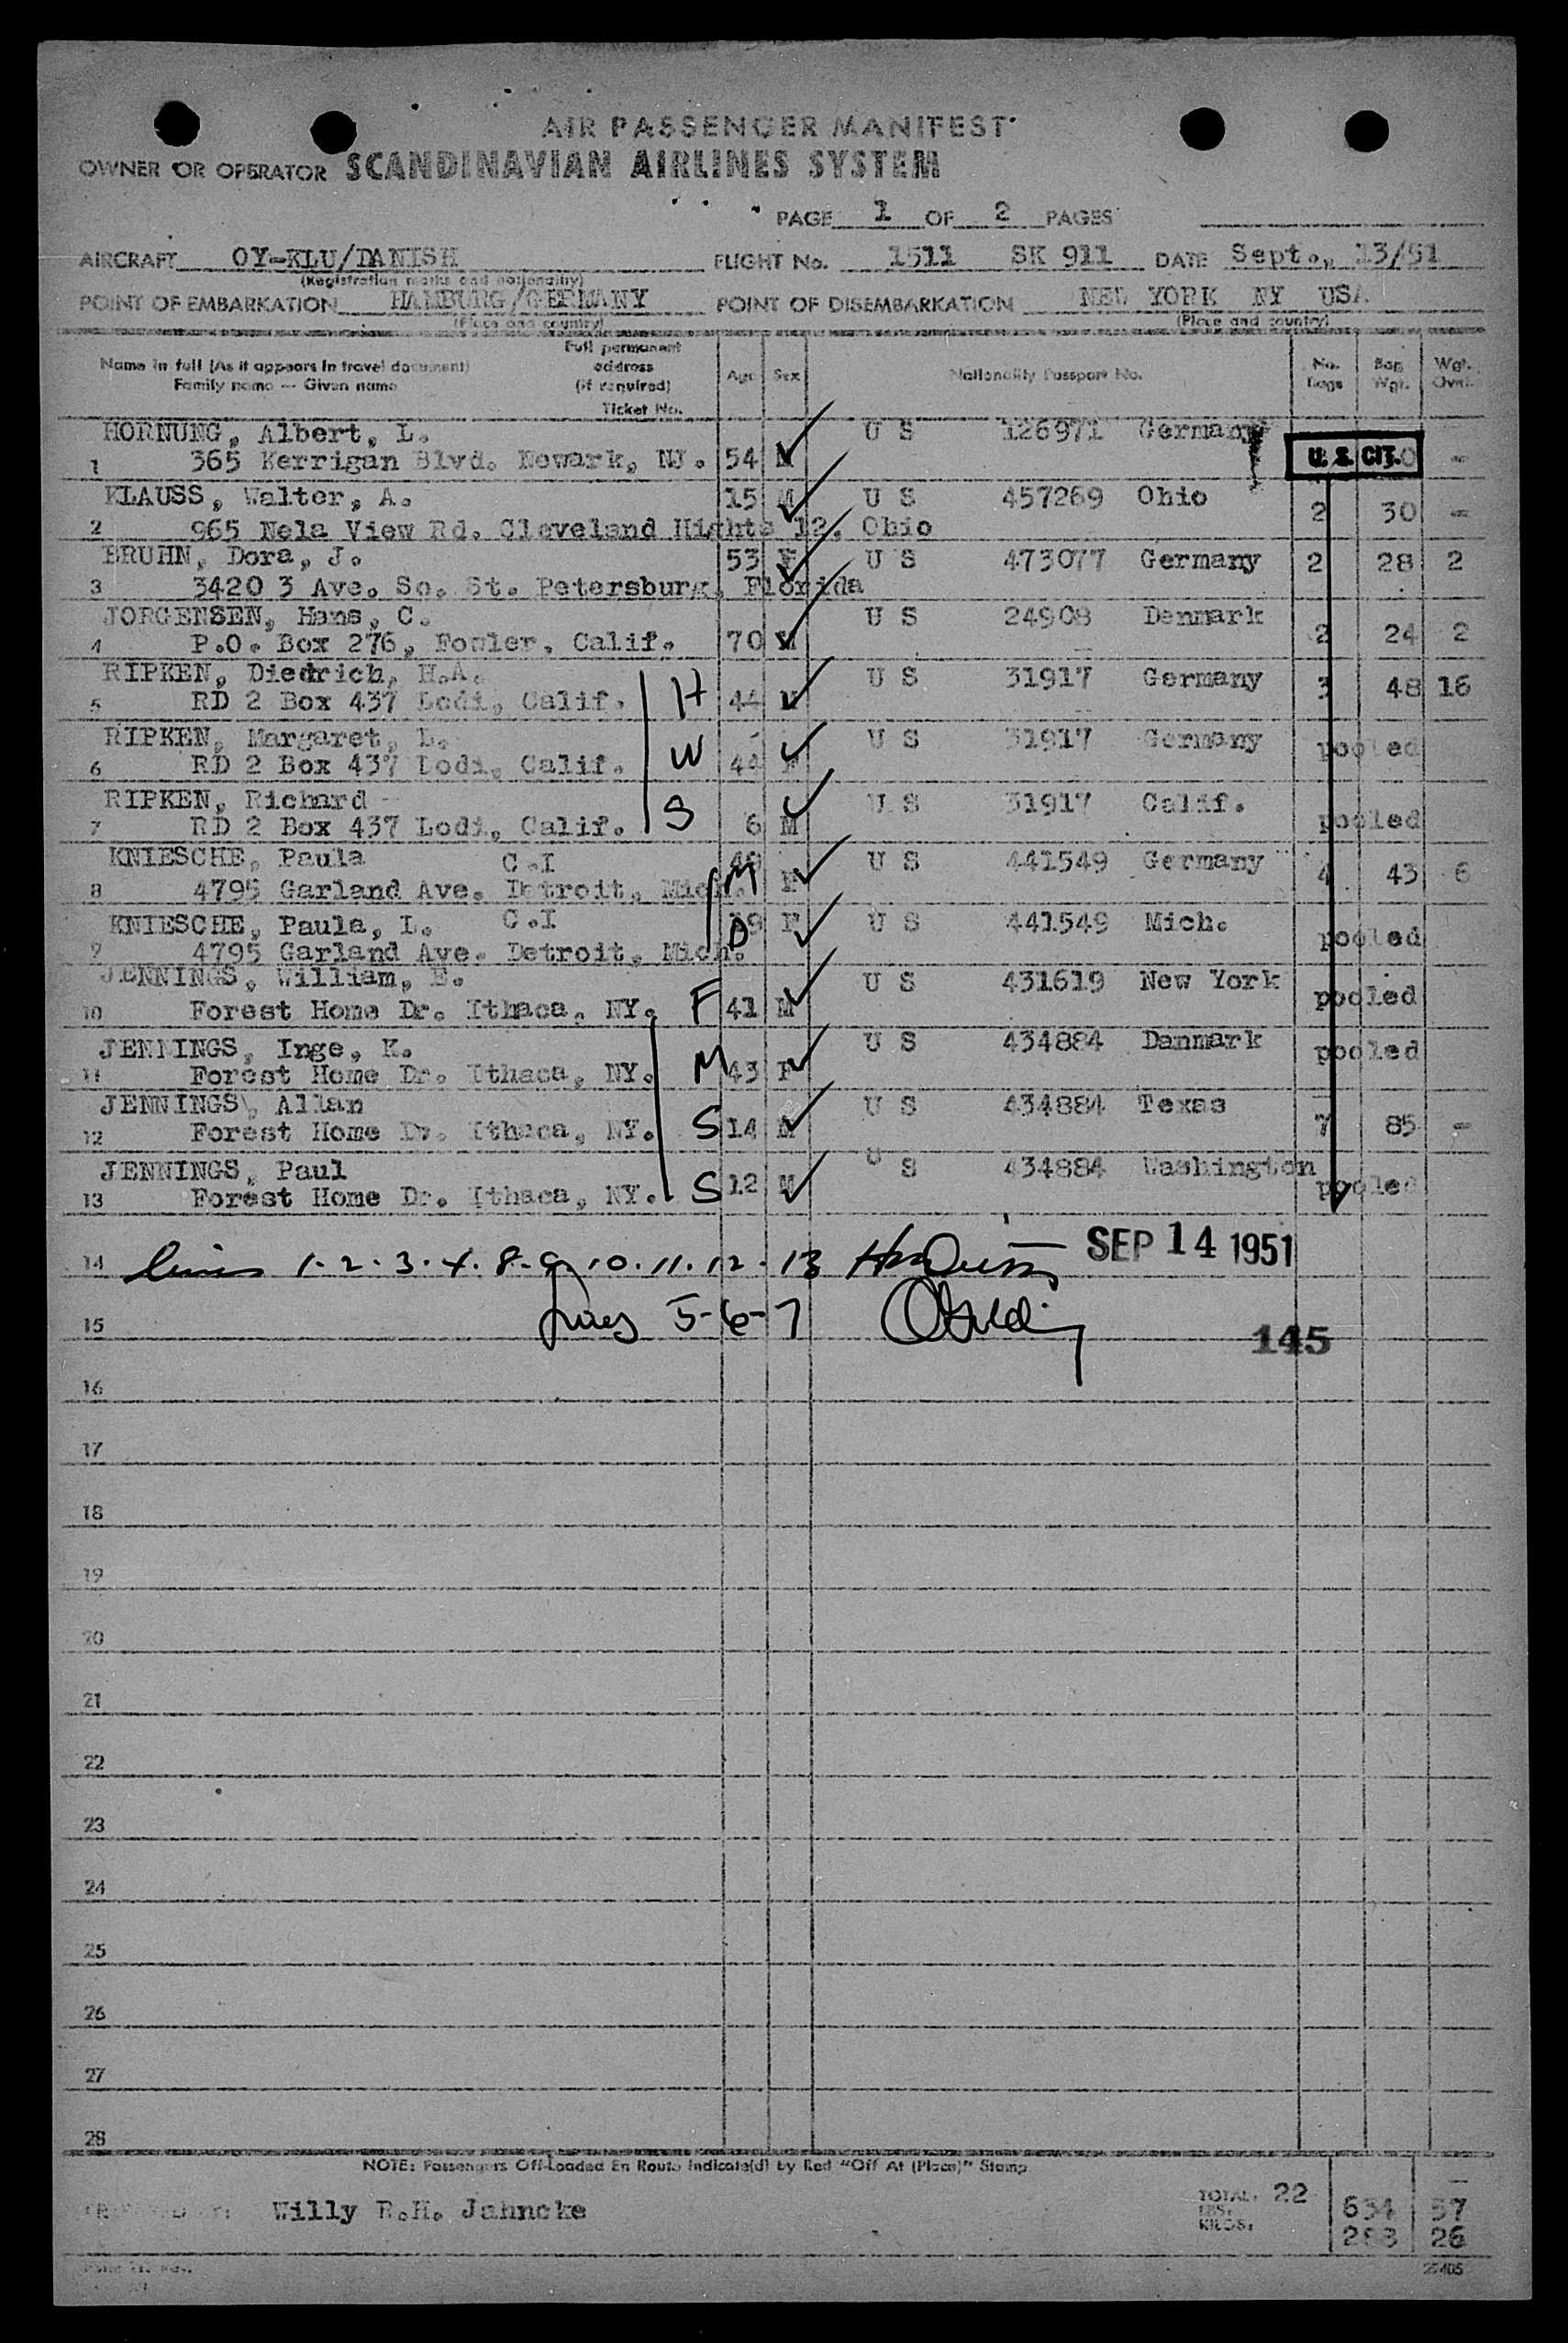 AIR PASSENGER MANIFEST
OWNER OR OPERATOR SCANDINAVIAN AIRLINES SYSTEM
PAGE 1 OF 2 PAGES
AIRCRAFT OY-KLU/DANISH FLIGHT No. 1511 SK 911 DATE Sept., 13/51
(Registration marks and nationality)
POINT OF EMBARKATION HAMBURG/GERMANY POINT OF DISEMBARKATION NEW YORK NY USA
(Place and country) (Place and country)
Name in full (As it appears in travel document) Family name — Given name Full permanent address (if required) Ticket No. Age Sex Nationality Passport No. No. Bags Bag Wgt. Wgt. Over.
HORNUNG, Albert, L. U S 126971 Germany
1 365 Kerrigan Blvd. Newark, NJ. 54 M U. S. CIT. -
KLAUSS, Walter, A. 15 M U S 457269 Ohio 2 30 -
2 965 Nela View Rd. Cleveland Hights 12, Ohio
BRUHN, Dora, J. 53 F U S 473077 Germany 2 28 2
3 3420 3 Ave. So. St. Petersburg, Florida
JORGENSEN, Hans, C. U S 24908 Denmark
4 P.O. Box 276, Fowler, Calif. 70 M 2 24 2
RIPKEN, Diedrich, H.A. U S 31917 Germany 3 48 16
5 RD 2 Box 437 Lodi, Calif. H 44 M
RIPKEN, Margaret, L. U S 31917 Germany pooled
6 RD 2 Box 437 Lodi, Calif. W 44 F
RIPKEN, Richard U S 31917 Calif.
7 RD 2 Box 437 Lodi, Calif. S 6 M pooled
KNIESCHE, Paula C.I U S 441549 Germany 4 43 6
8 4795 Garland Ave. Detroit, Mich. M F
KNIESCHE, Paula, L. C.I F U S 441549 Mich. pooled
9 4795 Garland Ave. Detroit, Mich. D
JENNINGS, William, E. U S 431619 New York pooled
10 Forest Home Dr. Ithaca, NY. F 41 M
JENNINGS, Inge, K. U S 434884 Danmark pooled
11 Forest Home Dr. Ithaca, NY. M 43 F
JENNINGS, Allan U S 434884 Texas
12 Forest Home Dr. Ithaca, NY. S 14 M 7 85 -
JENNINGS, Paul U S 434884 Washington
13 Forest Home Dr. Ithaca, NY. S 12 M pooled
14 lines 1-2-3-4-8-9-10-11-12-13 SEP 14 1951
15 Lines 5-6-7 145
16
17
18
19
20
21
22
23
24
25
26
27
28
NOTE: Passengers Off-Loaded En Route Indicate(d) by Red "Off At (Place)" Stamp
Willy R.H. Jahncke
TOTAL. 22
LBS. 634 57
KILOS. 288 26